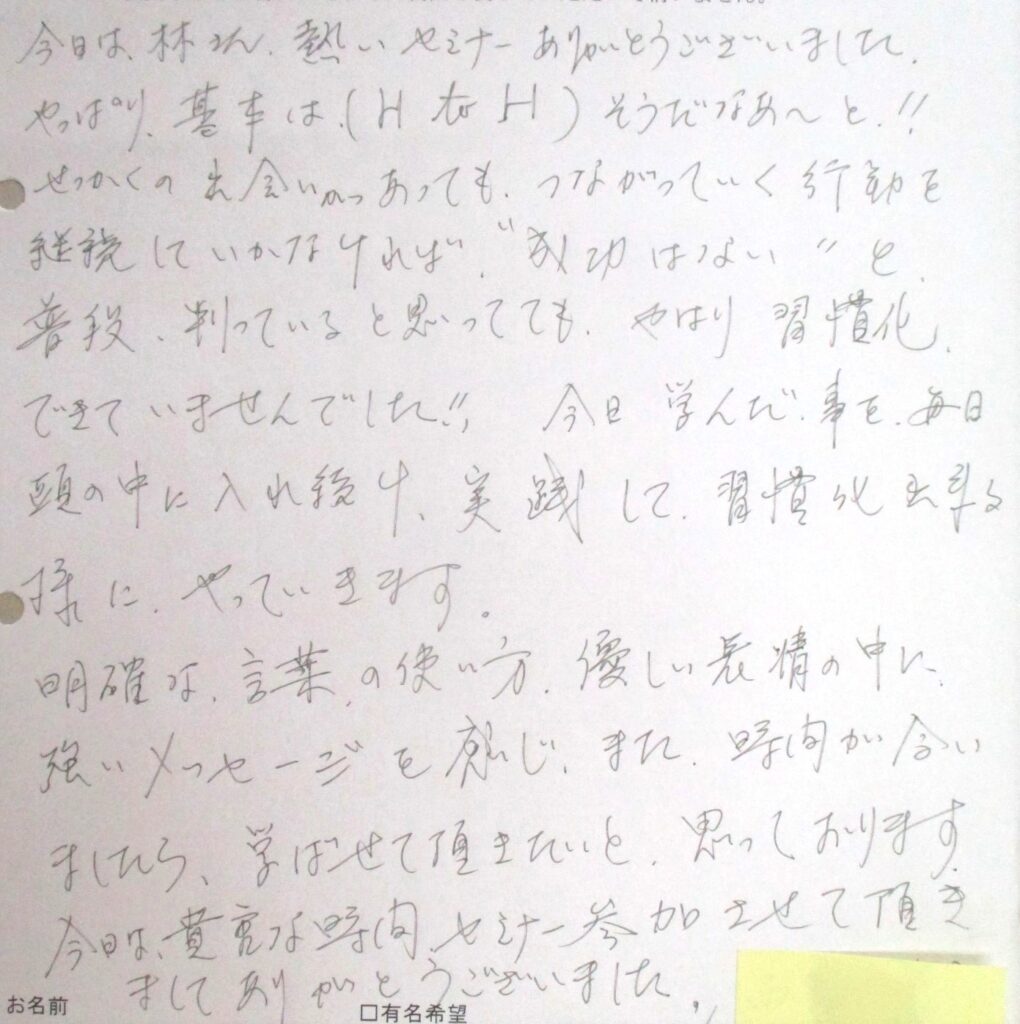 今日は、林さん、熱いセミナーありがとうございました。
やっぱり、基本は、(H to H) そうだなあ〜と、!!
せっかくの出会いがあっても、つながっていく行動を
継続していかなければ、"成功はない"と、
普段、判っていると思ってても、やはり習慣化、
できていませんでした!! 今日学んだ、事を、毎日
頭の中に入れ続け、実践して、習慣化出来る
様に、やっていきます。
明確な、言葉、の使い方、優しい表情の中に、
強いメッセージを感じ、また、時間が合い
ましたら、学ばせて頂きたいと、思っております。
今日は、貴重な時間、セミナー参加させて頂き
ましてありがとうございました。
お名前 □有名希望